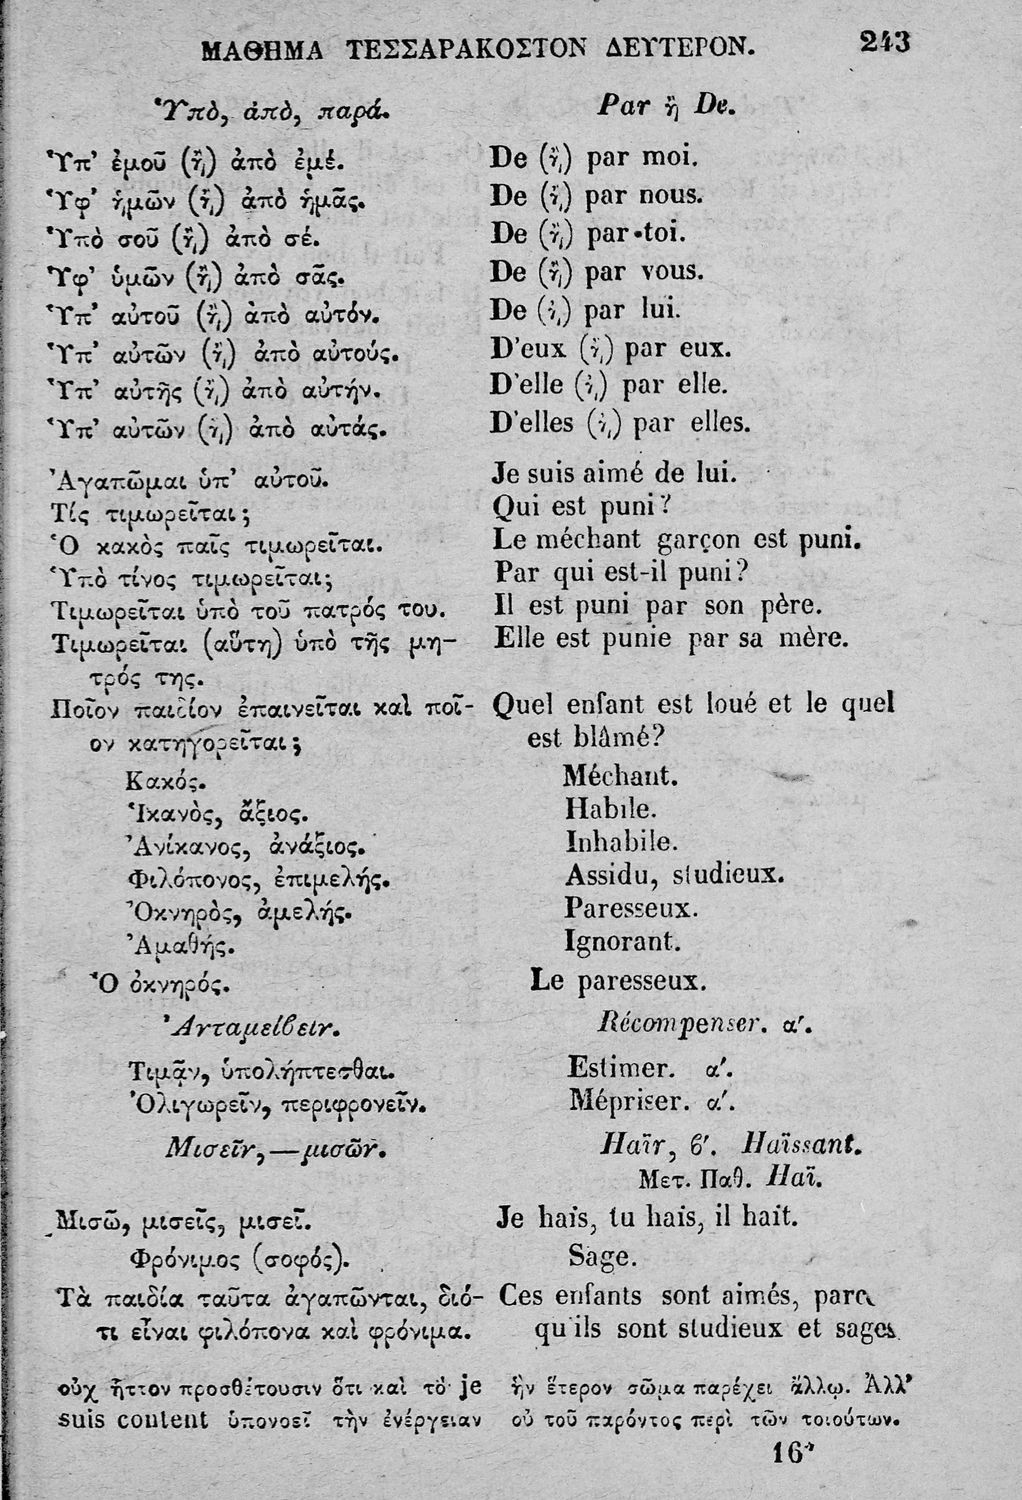 ΜΑΘΗΜΑ ΤΕΣΣΑΡΑΚΟΣΤΟΝ ΔΕΥΤΕΡΟΝ. 243
Ὑπὸ, ἀπὸ, παρά. Par ἢ De.
Ὑπ' ἐμοῦ (ἢ) ἀπὸ ἐμέ. De (ἢ) par moi.
Ὑφ' ἡμῶν (ἢ) ἀπὸ ἡμᾶς. De (ἢ) par nous.
Ὑπὸ σοῦ (ἢ) ἀπὸ σέ. De (ἢ) par toi.
Ὑφ' ὑμῶν (ἢ) ἀπὸ σᾶς. De (ἢ) par vous.
Ὑπ' αὐτοῦ (ἢ) ἀπὸ αὐτόν. De (ἢ) par lui.
Ὑπ' αὐτῶν (ἢ) ἀπὸ αὐτούς. D'eux (ἢ) par eux.
Ὑπ' αὐτῆς (ἢ) ἀπὸ αὐτήν. D'elle (ἢ) par elle.
Ὑπ' αὐτῶν (ἢ) ἀπὸ αὐτάς. D'elles (ἢ) par elles.
Ἀγαπῶμαι ὑπ' αὐτοῦ. Je suis aimé de lui.
Τίς τιμωρεῖται; Qui est puni?
Ὁ κακὸς παῖς τιμωρεῖται. Le méchant garçon est puni.
Ὑπὸ τίνος τιμωρεῖται; Par qui est-il puni?
Τιμωρεῖται ὑπὸ τοῦ πατρός του. Il est puni par son père.
Τιμωρεῖται (αὕτη) ὑπὸ τῆς μη- Elle est punie par sa mère.
τρός της.
Ποῖον παιδίον ἐπαινεῖται καὶ ποῖ- Quel enfant est loué et le quel
ον κατηγορεῖται; est blâmé?
Κακός. Méchant.
Ἱκανὸς, ἄξιος. Habile.
Ἀνίκανος, ἀνάξιος. Inhabile.
Φιλόπονος, ἐπιμελής. Assidu, studieux.
Ὀκνηρὸς, ἀμελής. Paresseux.
Ἀμαθής. Ignorant.
Ὁ ὀκνηρός. Le paresseux.
Ἀνταμείβειν. Récompenser. α'.
Τιμᾷν, ὑπολήπτεσθαι. Estimer. α'.
Ὀλιγωρεῖν, περιφρονεῖν. Mépriser. α'.
Μισεῖν,—μισῶν. Haïr, β'. Haïssant.
Μετ. Παθ. Haï.
Μισῶ, μισεῖς, μισεῖ. Je hais, tu hais, il hait.
Φρόνιμος (σοφός). Sage.
Τὰ παιδία ταῦτα ἀγαπῶνται, διό- Ces enfants sont aimés, parc
τι εἶναι φιλόπονα καὶ φρόνιμα. qu'ils sont studieux et sages
οὐχ ἧττον προσθέτουσιν ὅτι καὶ τὸ je ἣν ἕτερον σῶμα παρέχει ἄλλῳ. Ἀλλ'
suis content ὑπονοεῖ τὴν ἐνέργειαν οὐ τοῦ παρόντος περὶ τῶν τοιούτων.
16*